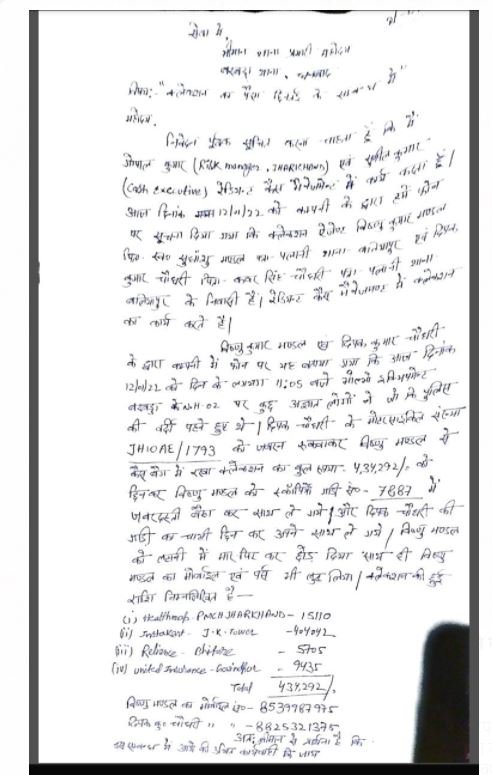 सेवा में,
श्रीमान थाना प्रभारी महोदय
बरवड्डा थाना, धनबाद
विषय:- "कलेक्शन का पैसा छिनतई के सम्बन्ध में"
महोदय,
निवेदन पूर्वक सूचित करना चाहता हूँ कि मैं
गोपाल कुमार (Risk manager, JHARKHAND) एवं सुशील कुमार
(Cash executive) रेडिएंट कैश मैनेजमेंट में कार्य करता हूँ|
आज दिनांक 12/01/22 को कम्पनी के द्वारा हमें फोन
पर सूचना दिया गया कि कलेक्शन ऐजेण्ट विष्णु कुमार मण्डल
पिता- स्व० सुधांशु मण्डल पता- पलानी थाना- बलियापुर एवं दिपक
कुमार चौधरी पिता- कंवर सिंह चौधरी पता- पलानी थाना-
बलियापुर के निवासी हैं| रेडिएंट कैश मैनेजमेण्ट में कलेक्शन
का कार्य करते हैं|
विष्णु कुमार मण्डल एवं दिपक कुमार चौधरी
के द्वारा कम्पनी में फोन पर यह बताया गया कि आज दिनांक
12/01/22 को दिन के लगभग 11:05 बजे
बरवड्डा के NH-02 पर कुछ अज्ञात लोगों ने जो कि पुलिस
की वर्दी पहने हुए थे| दिपक चौधरी के मोटरसाइकिल संख्या
JH10AE/1793 को जबरन रूकवाकर विष्णु मण्डल से
कैश बैग में रखा कलेक्शन का कुल रूपया- 4,34,292/- को
छिनकर विष्णु मण्डल को स्कॉर्पियो गाड़ी सं०- 7887 में
जबरदस्ती बैठा कर साथ ले गये| और दिपक चौधरी की
गाड़ी का चाभी छिन कर अपने साथ ले गये| विष्णु मण्डल
को में मार पिट कर छोड़ दिया साथ ही विष्णु
मण्डल का मोबाईल एवं पर्स भी लुट लिया| कलेक्शन की हुई
राशि निम्नलिखित है—
(i) Healthmap- PMCH JHARKHAND - 15110
(ii) Instakart- J.K. Tower -404042
(iii) Reliance - Bhitore - 5705
(iv) United Insurance- Govindpur - 9435
Total 434,292/-
विष्णु मण्डल का मोबाईल सं०- 8539987975
दिपक कु० चौधरी " " -8825321375
अतः श्रीमान से प्रार्थना है कि
इस सम्बन्ध में आगे की उचित कार्यवाही कि जाय